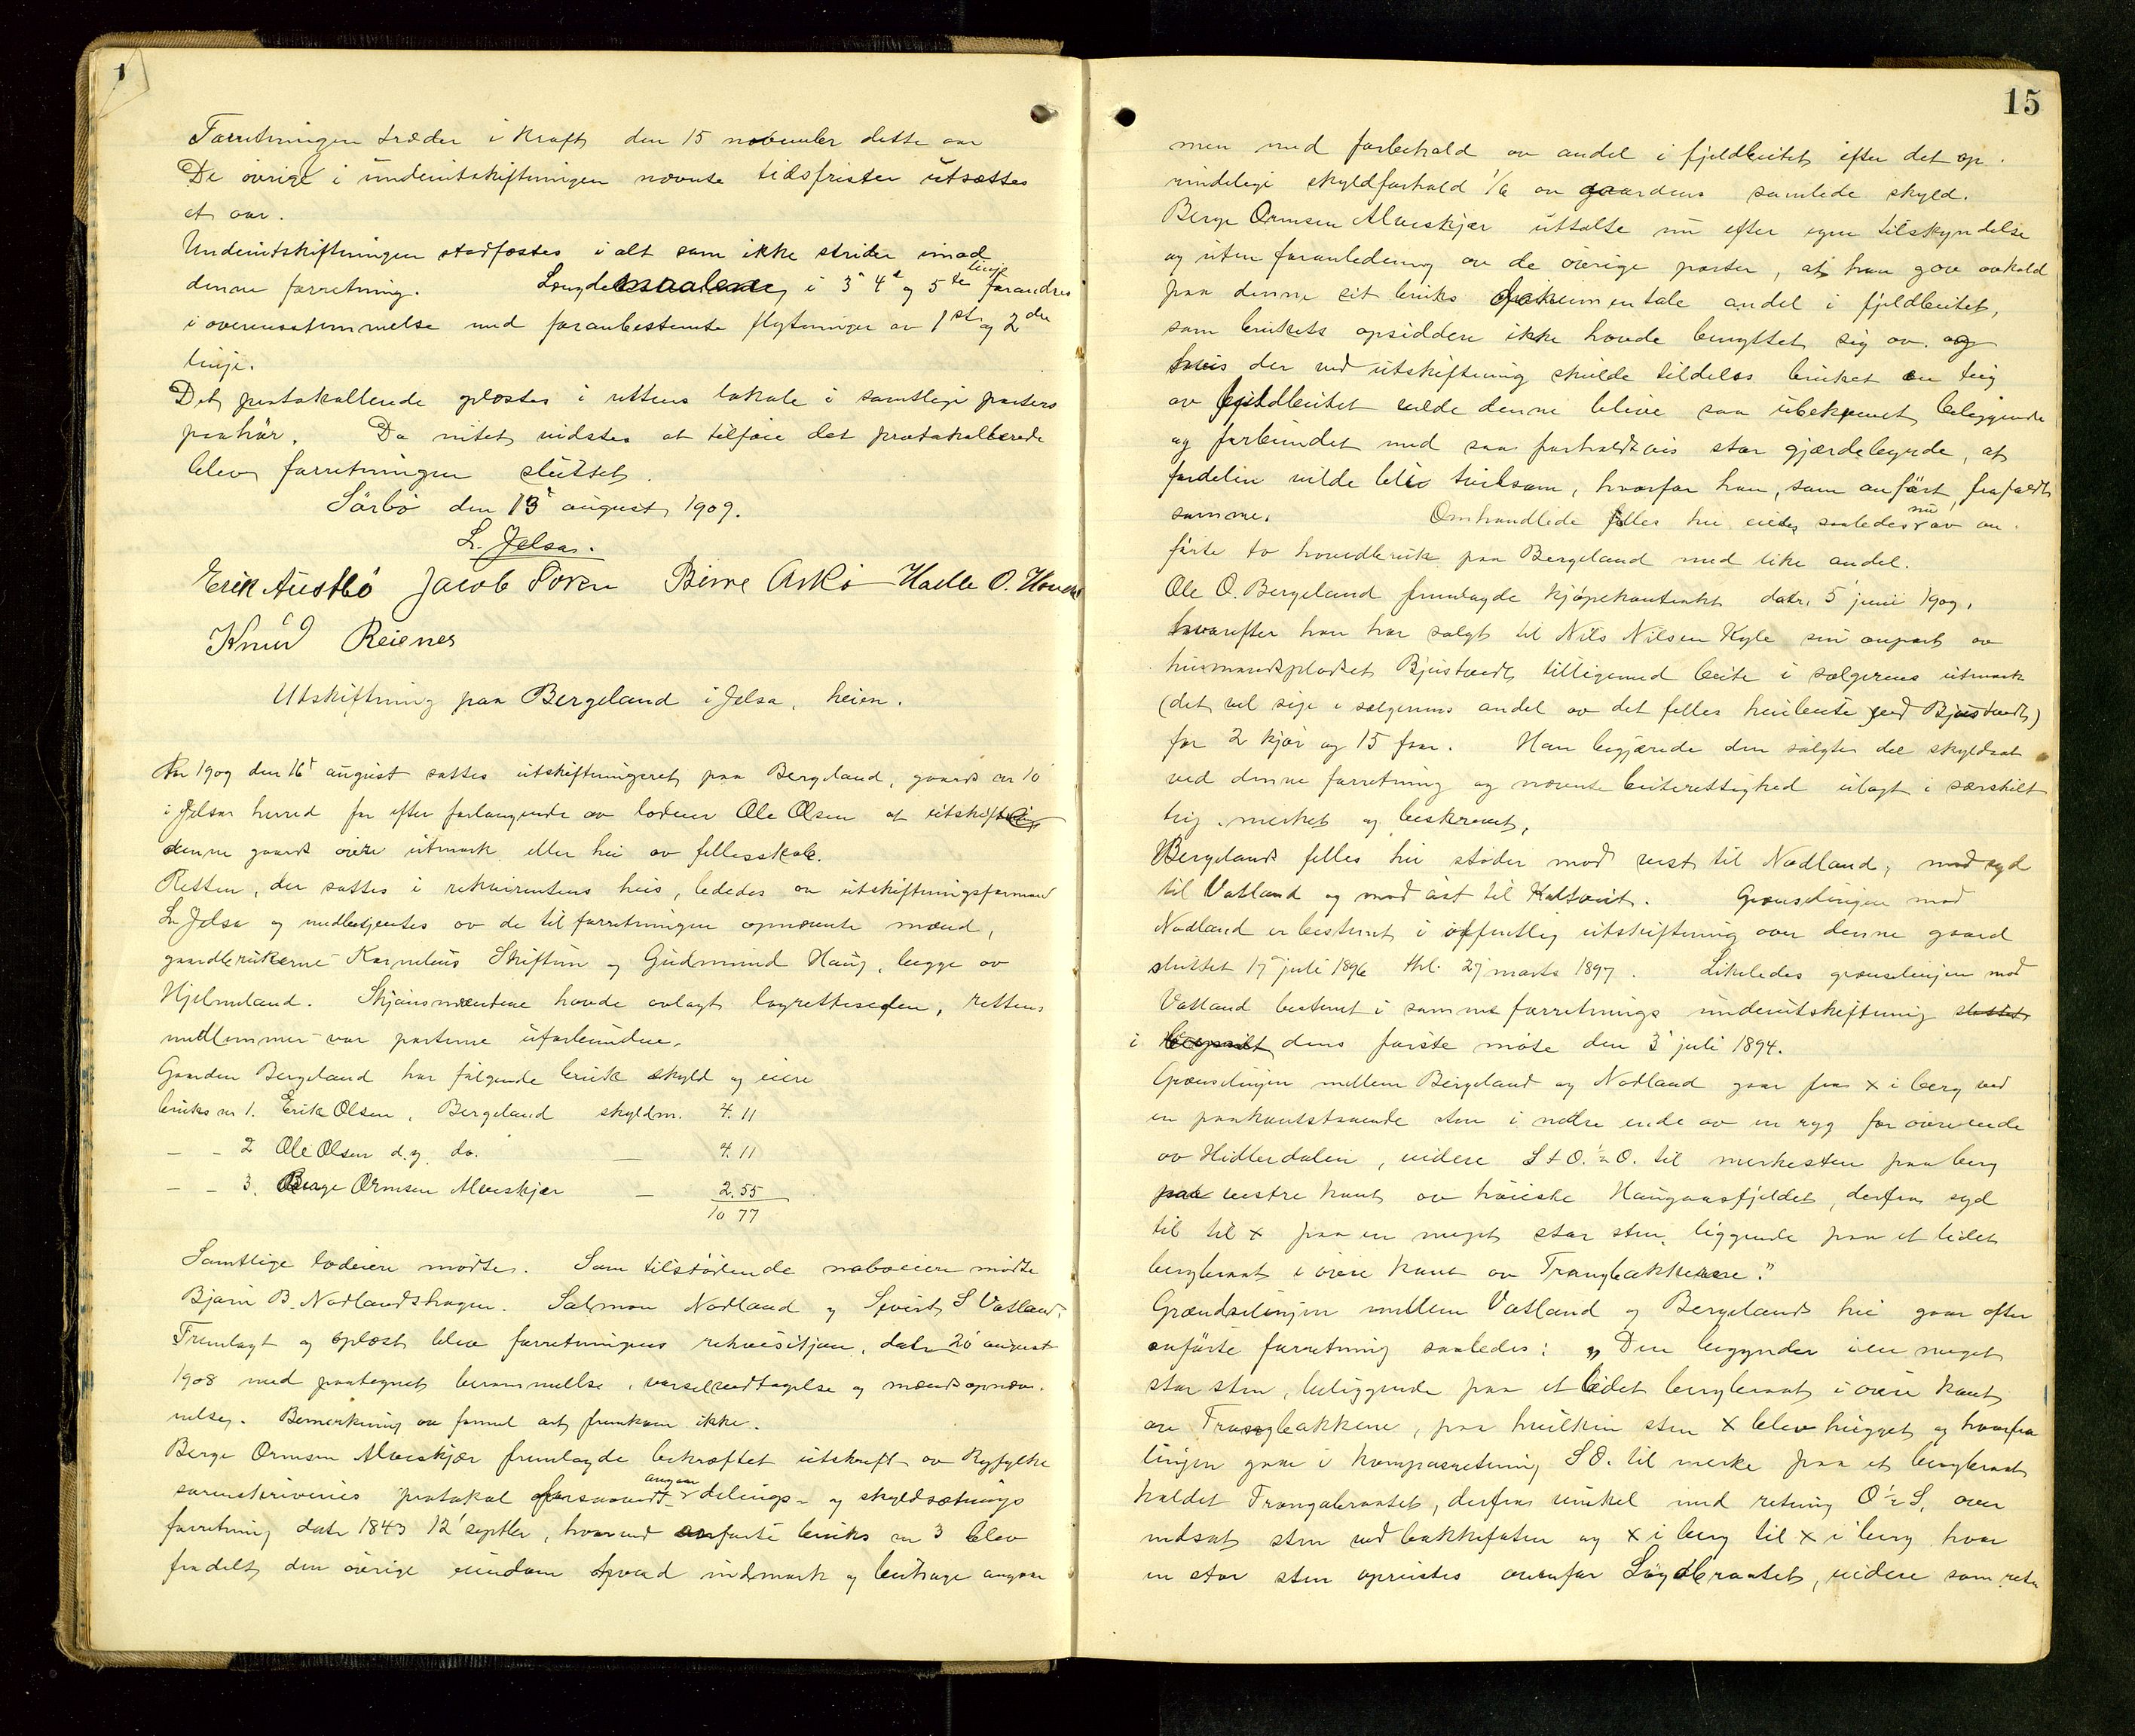 1
Forretningen træder i kraft den 15 november dette aar
De övrige i underutskiftningen nævnte tidsfrister utsættes
et aar.
Underutskiftningen stadfæstes i alt som ikke strider imod
denne forretning. Længdemaalene i 3' 4de og 5te linje forandres
i overensstemmelse med foranbestemte flytninger av 1ste og 2den
linje.
Det protokollerede oplæstes i rettens lokale i samtlige parters
paahör. Da intet vidstes at tilföie det protokollerede
blev forretningen sluttet.
Sörbö den 13' august 1909.
L. Jelsa.
Erik Austbö Jacob Foren Birre Askö Halle O.
Knud Reienes
Utskiftning paa Bergeland i Jelsa, heien.
Aar 1909 den 16' august sattes utskiftningsret paa Bergeland, gaards nr 10
i Jelsa herred for efter forlangende av lodeier Ole Olsen at utskifte
denne gaards övre utmark eller hei av fellesskab.
Retten, der sattes i rekvirentens hus, lededes av utskiftningsformand
L. Jelsa og medbetjentes av de til forretningen opnævnte mænd,
gaardbrukerne Kornelius Skiftun og Gudmund Haug, begge av
Hjelmeland. Skjönsmændene havde avlagt lagretteseden, rettens
medlemmer var parterne uforbundne.
Gaarden Bergeland har fölgende bruk skyld og eiere
bruks nr 1. Erik Olsen, Bergeland skyldm. 4.11
- - 2 Ole Olsen d.y. do. — 4.11
- - 3. Berge Ormsen Alveskjær — 2.55
10 77
Samtlige lodeiere mödte. Som tilstödende naboeiere mödte
Bjørn B. Nadlandshagen. Salmon Nadland og Sjvert S Vatland.
Fremlagt og oplæst blev forretningens rekvisitjon, datr 20' august
1908 med paategnet berammelse, varselvedtagelse og mændsopnæv-
nelse. Bemerkning av formel art fremkom ikke.
Berge Ormsen Alveskjær fremlagde bekræftet utskrift av Ryfylke
sorenskriveries protokol angaar delings- og skyldsætnings
forretning datr 1843 12' septbr, hvorved anförte bruks nr 3 blev
fradelt den övrige eiendom hvad indmark og buhage angaar
15
men med forbehold av andel i fjeldbeitet efter det op-
rindelige skyldforhold 1/6 av gaardens samlede skyld.
Berge Ormsen Alveskjær uttalte nu efter egen tilskyndelse
og uten foranledning av de övrige parter, at han gav avkald
paa denne sit bruks dokumentale andel i fjeldbeitet,
som brukets opsiddere ikke havde benyttet sig av. og
hvis der ved utskiftning skulde tildeles bruket en teig
av fjeldbeitet vilde denne blive saa ubekvemt beliggende
og forbundet med saa forholdsvis stor gjærdebyrde, at
fordelen vilde bliv tvilsom, hvorfor han, som anfört, frafaldt
samme. Omhandlede felles hei eies saaledes nu av an-
förte to hovedbruk paa Bergeland med like andel.
Ole O. Bergeland fremlagde kjöpekontrakt datr. 5' juni 1909,
hvorefter han har solgt til Nils Nilsen Kyle sin anpart av
husmandspladset Bjustveidt tilligemed beite i sælgerens utmark
(det vil sige i sælgerens andel av det felles heibeite ved Bjustveidt)
for 2 kjör og 15 faar. Han begjærede den solgte del skyldsat
ved denne forretning og nævnte beiterettighed utlagt i særskilt
teig, merket og beskrevet,
Bergelands felles hei stöder mod vest til Nadland, mod syd
til Vatland og mod öst til Kaltveit. Grænselinjen mod
Nadland er bestemt i offentlig utskiftning over denne gaard
sluttet 17' juli 1896 thl. 27' marts 1897. Likeledes grænselinjen mod
Vatland bestemt i samme forretnings underutskiftning
i dens förste möte den 3' juli 1894.
Grænselinjen mellem Bergeland og Nadland gaar fra x i berg ved
en paakantstaaende sten i nedre ende av en ryg for övre ende
av Hidlerdalen, videre S t O. ½ O. til merkesten paa berg
paa vestre kant av höieste Haugaasfjeldet, derfra syd
til til x paa en meget stor sten, liggende paa et lidet
bergbraat i övre kant av Trangbakkerne."
Grændselinjen mellem Vatland og Bergelands hei gaar efter
anförte forretning saaledes: „Den begynder i en meget
stor sten, beliggende paa et lidet bergbraat i övre kant
av Trangbakkene, paa hvilken sten x blev hugget og hvorfra
linjen gaar i kompasretning S O. til merke paa et bergbraat
kaldet Trangabraatet, derfra vinkel med retning O ½ S. over
nedsat sten ved bakkefoten og x i berg til x i berg hvor
en stor sten opreistes ovenfor Löydbraatet, videre som retn